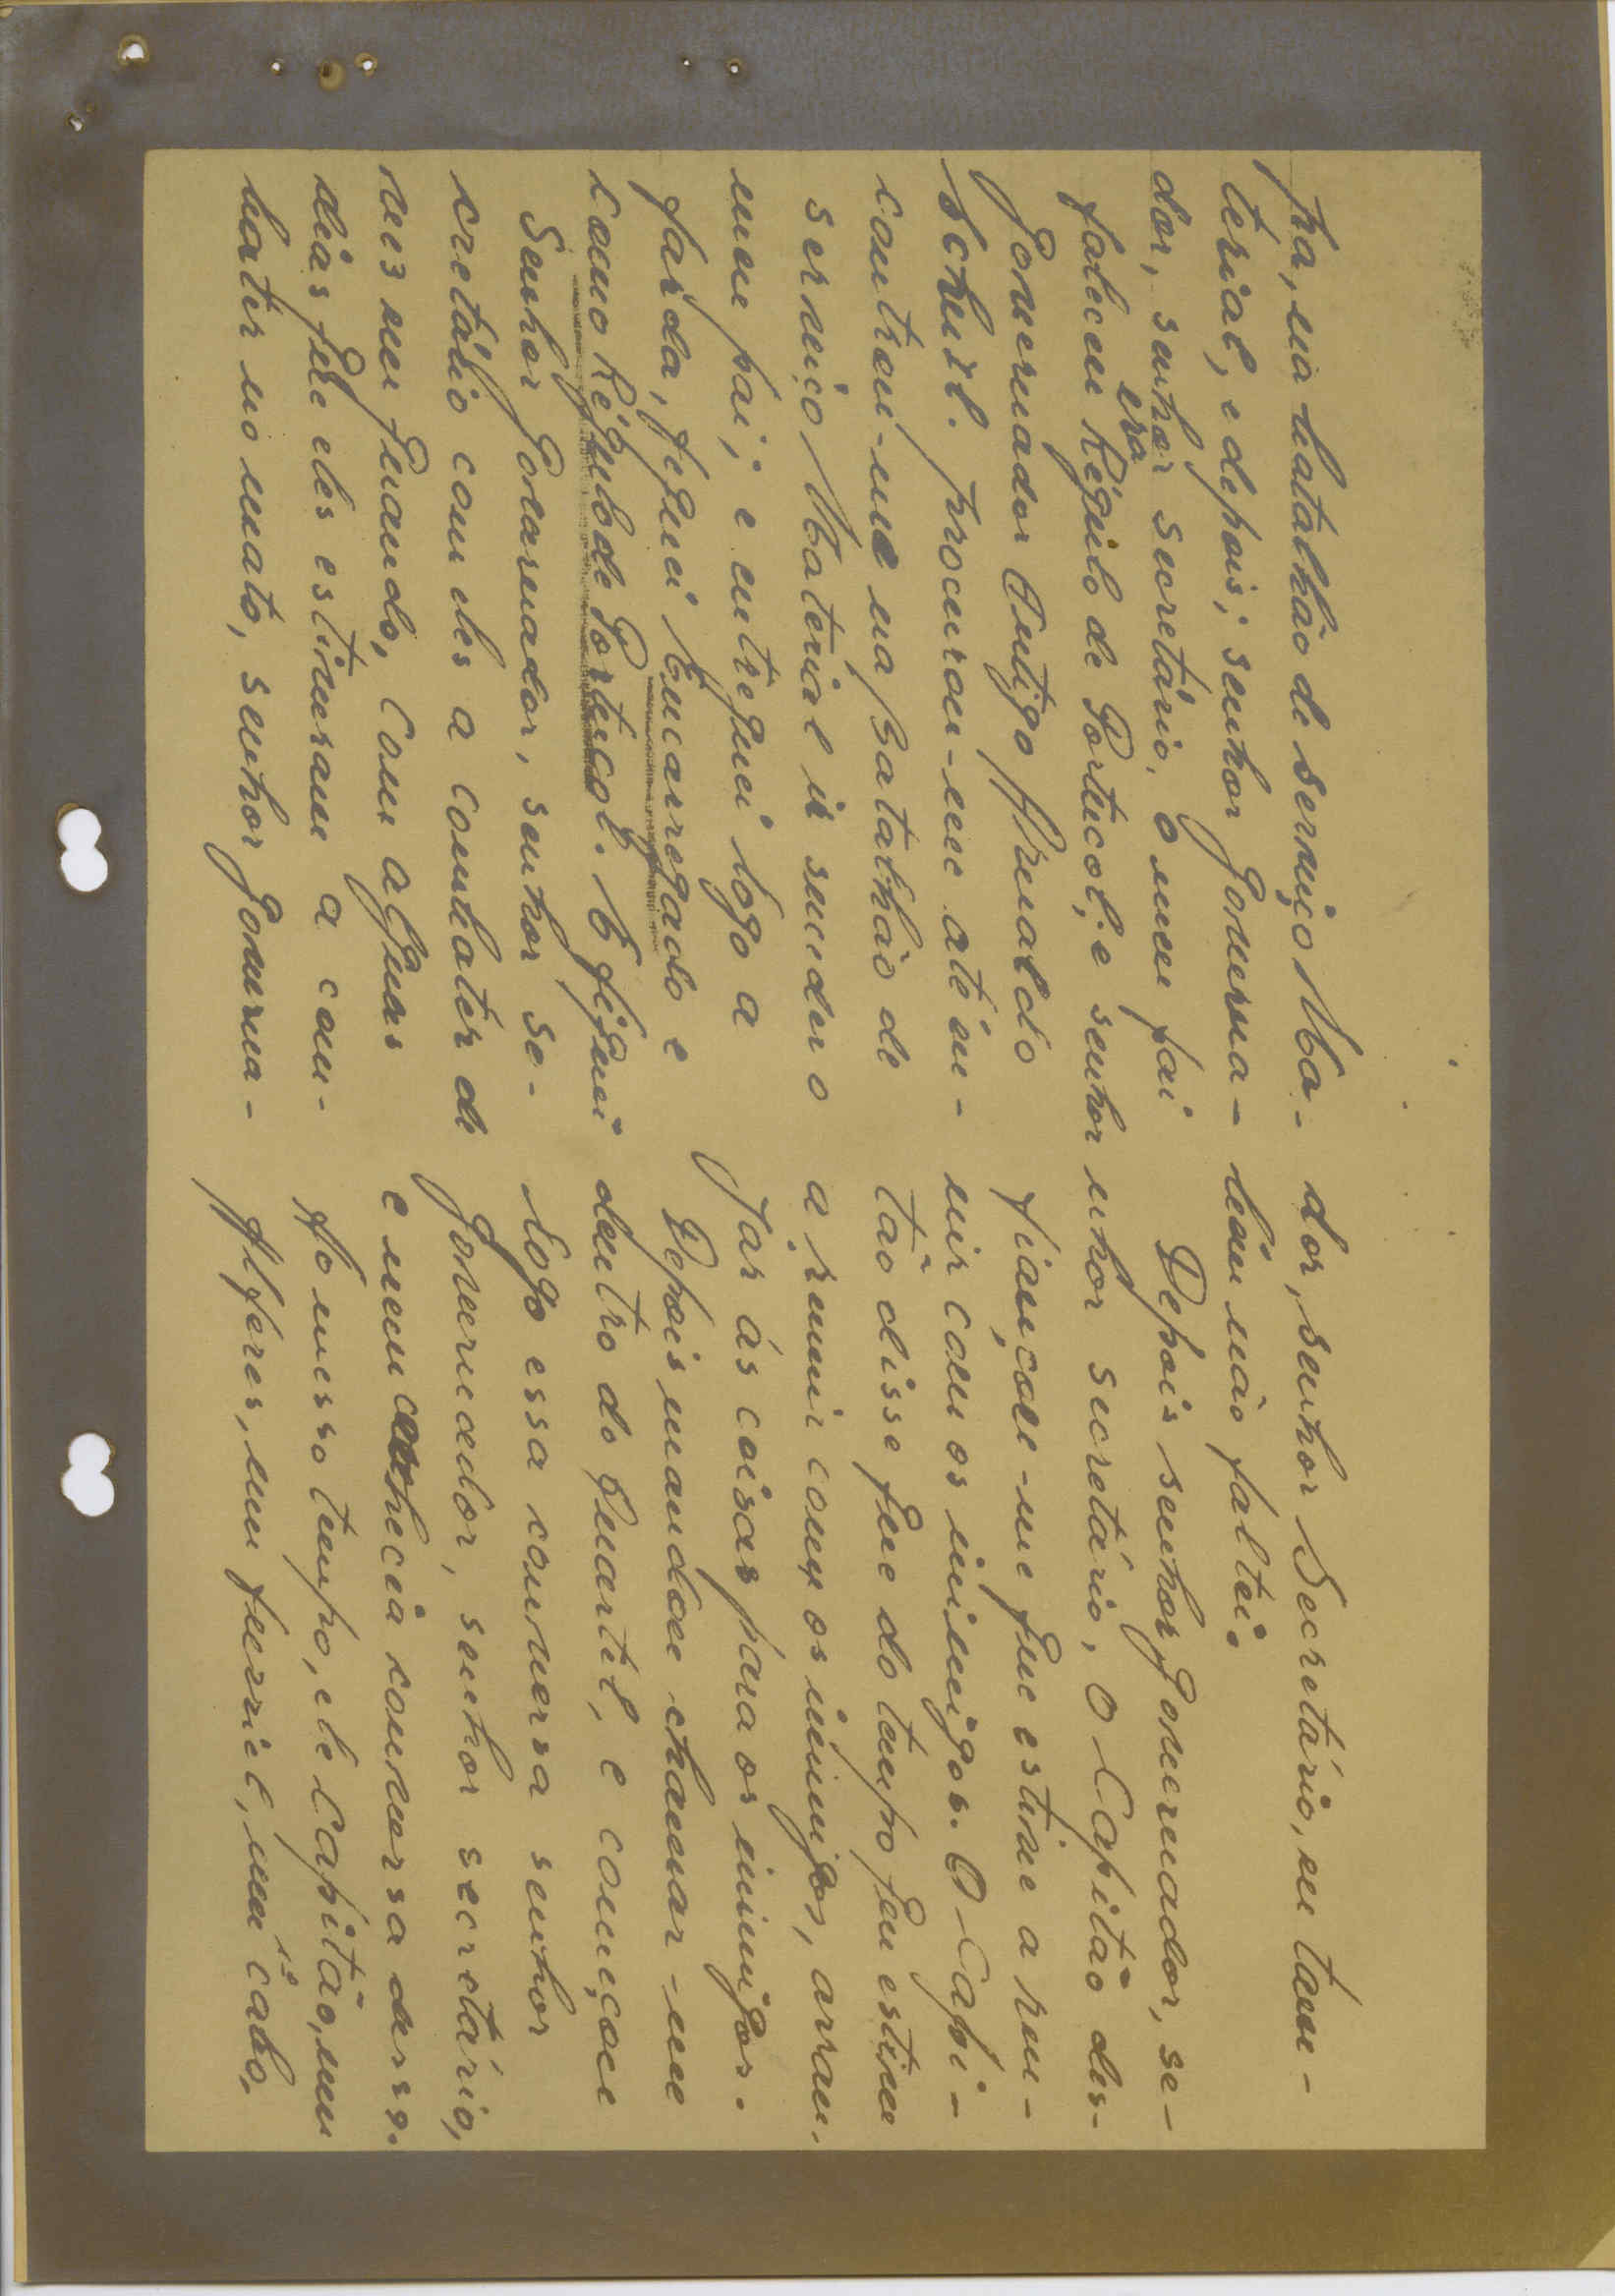 pa, na batalhão de serviço Ma-
térial, e depois; senhor Governa-
dor, senhor secretário, o meu pai
era
faleceu Régulo de Portucol; e senhor
Governador Antigo Arnaldo
Schulz. procurou-me até in-
controu-me na Batalhão de
serviço Material
meu pai; e entreguei logo a
farda, fiquei Encarregado e
como Régulo de Portucol. E fiquei
Senhor Governador, senhor se-
cretário com eles a combater de
vez em quando, com alguns
dias que eles estiveram a com-
bater no mato, senhor Governa-
dor, senhor Secretário, eu tam-
bém não faltei.
Depois senhor Governador, se-
nhor secretário, O Capitão des-
fiançou-me que estive a reu-
nir com os inimigos. O Capi-
tão disse que do tempo que estive
a reunir com os inimigos, arran-
jar as coisas para os inimigos.
Depois mandou chamar-me
dentro do quartel, e começou
logo essa conversa senhor
Governador, senhor secretário,
e nem conhecia conversa desse.
Ao messo tempo, ele Capitão, um
Alferes, um furriel, um 1º cabo.